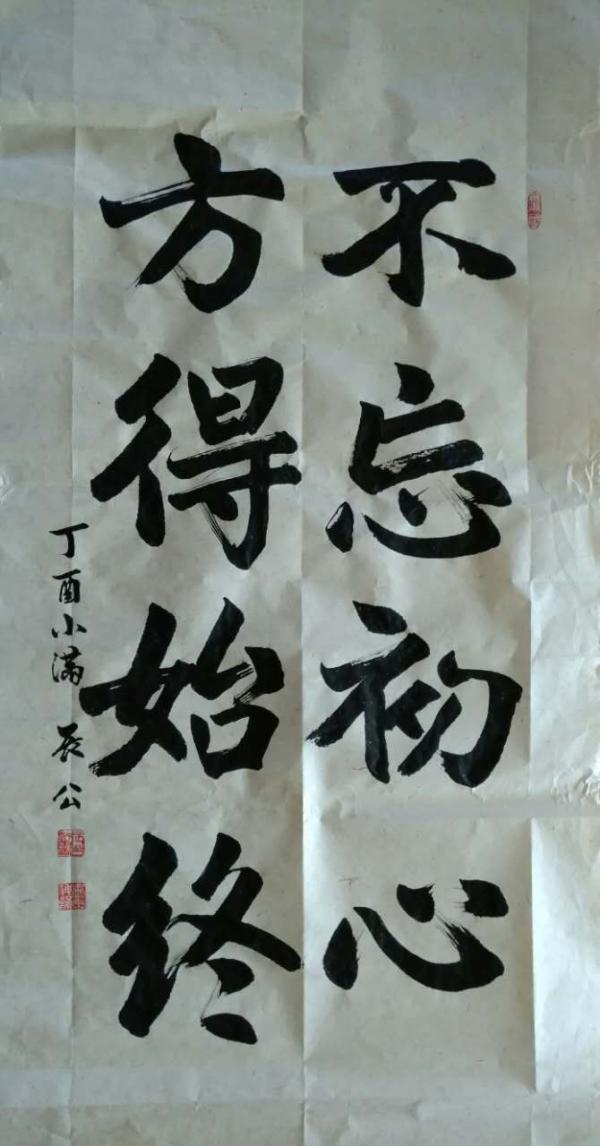 不忘初心
方得始终
丁酉小满 辰公